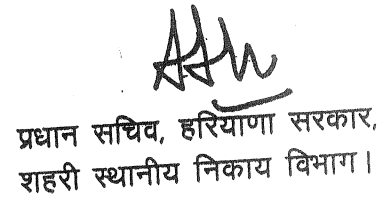 प्रधान सचिव, हरियाणा सरकार,
शहरी स्थानीय निकाय विभाग।